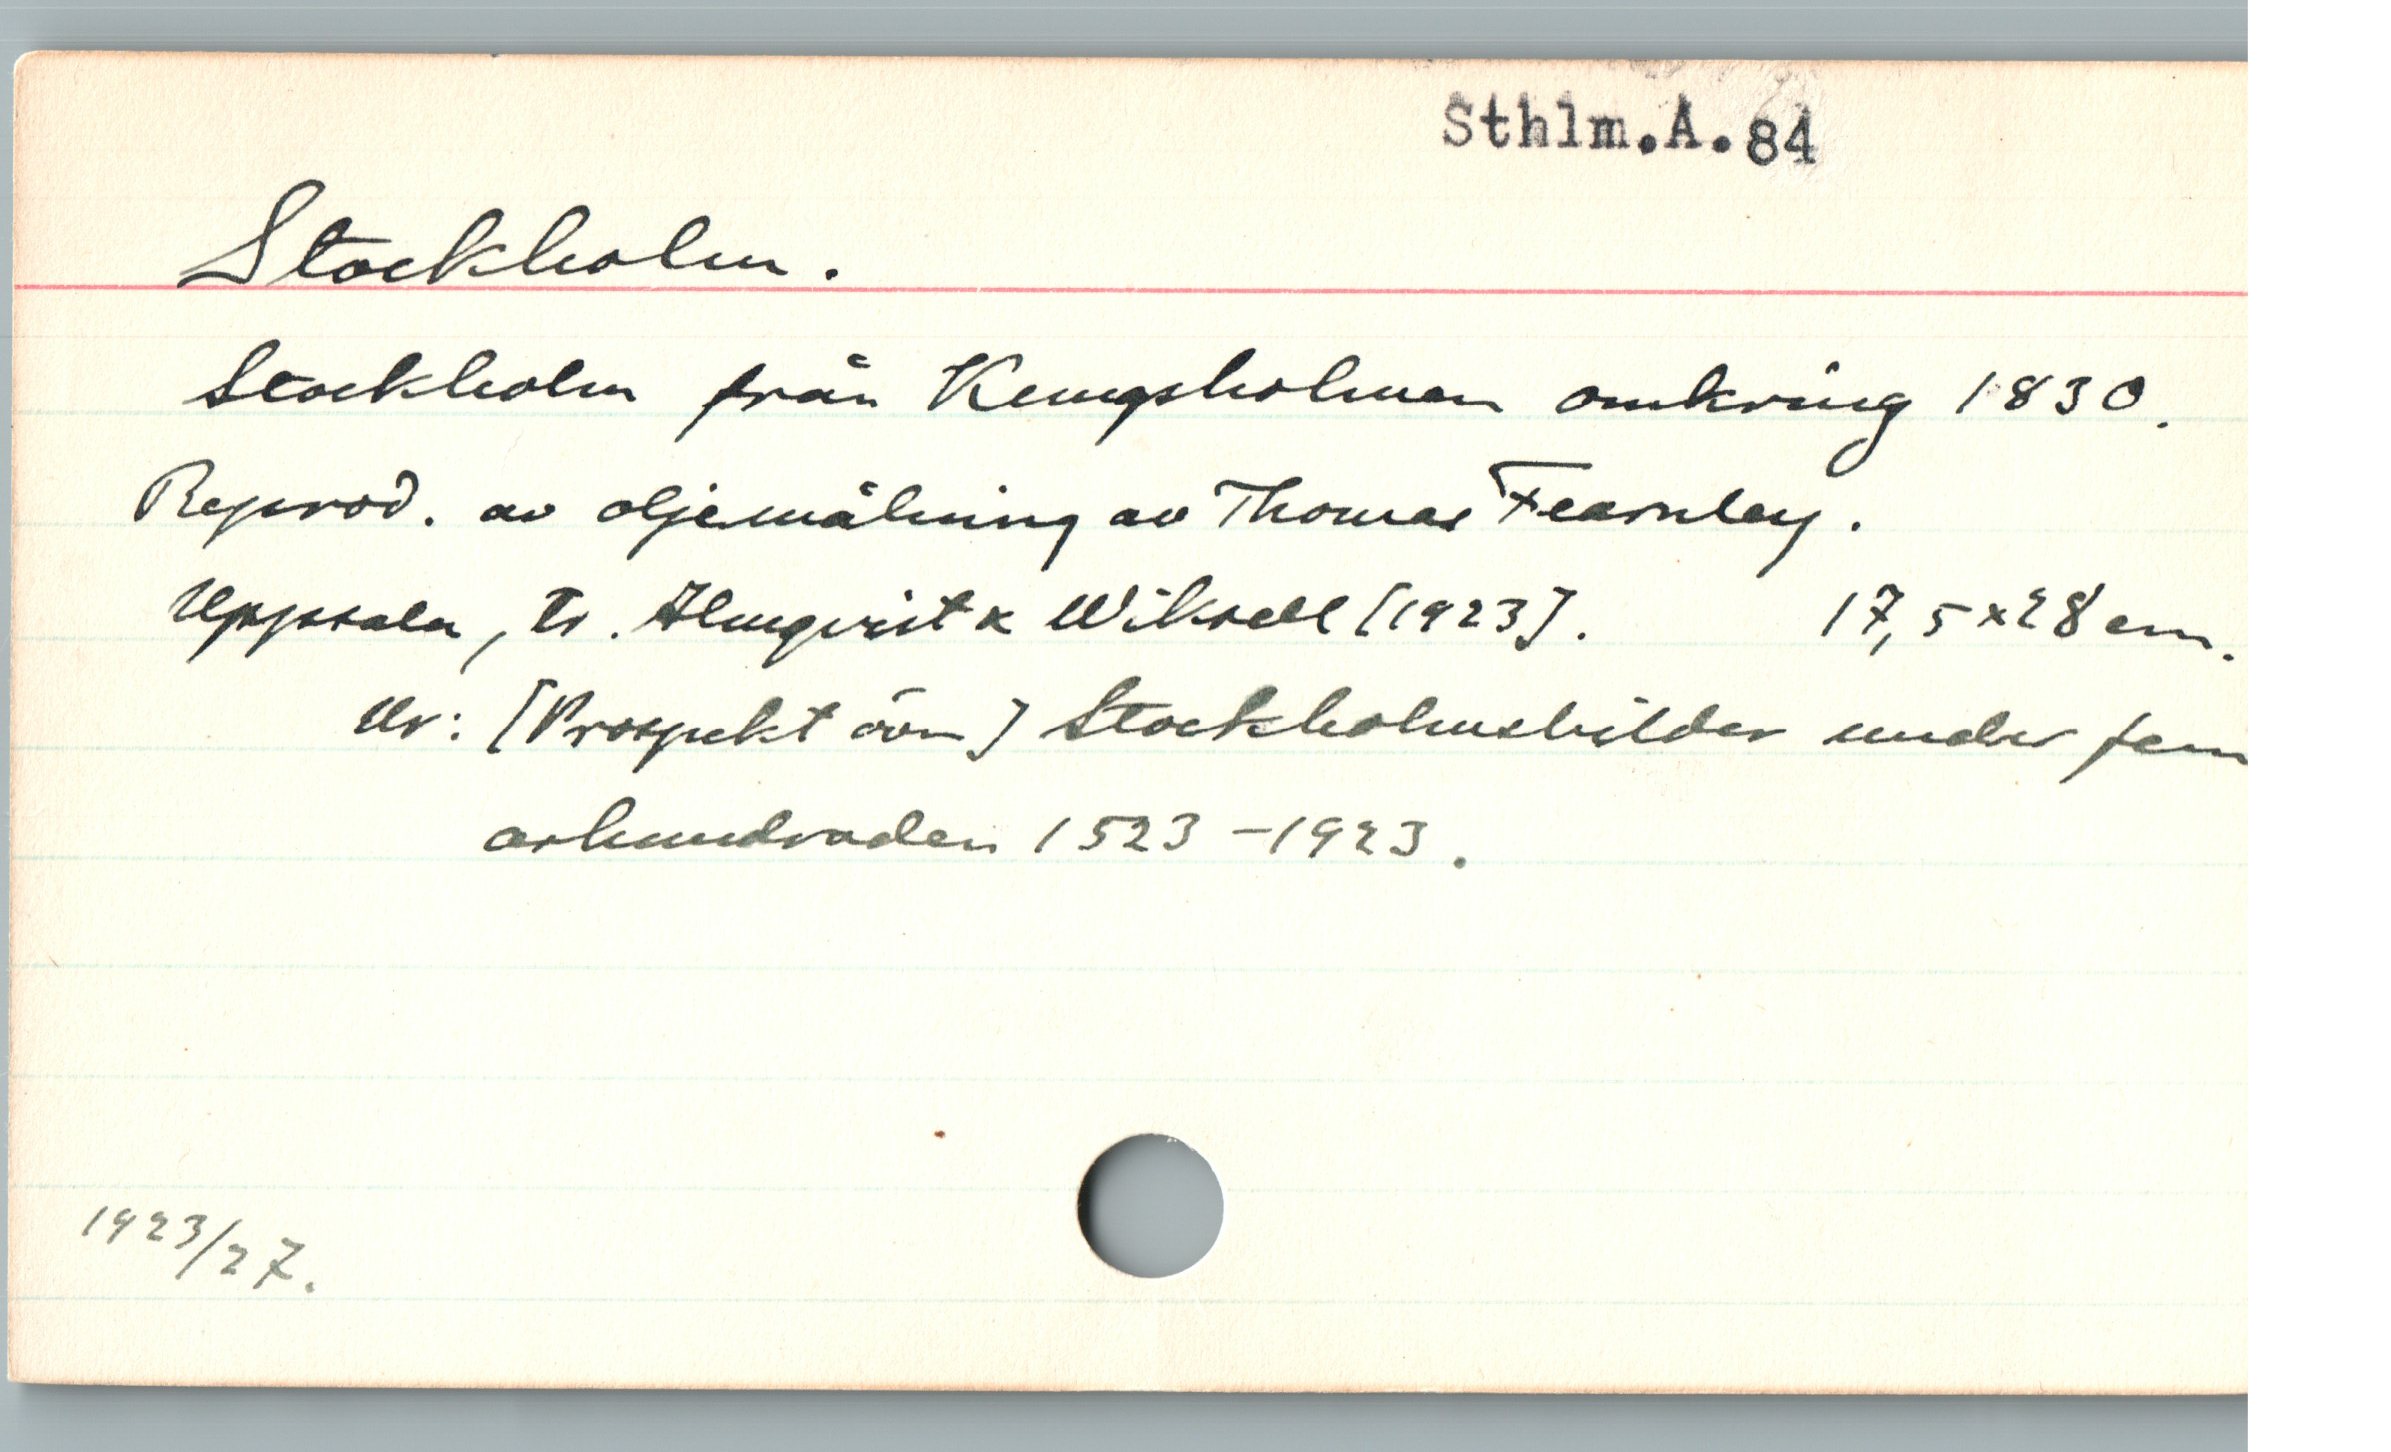 Sthlm.A.84
Stockholm.
Stockholm från Kungsholmen omkring 1830.
Reprod. av oljemålning av Thomas Fearnley.
Uppsala, tr. Almqvist & Wiksell [1923]. 17,5×28 cm.
Ur: [Prospekt öön] Stockholmsbilder under fem
århundraden 1523-1923.
1923/27.